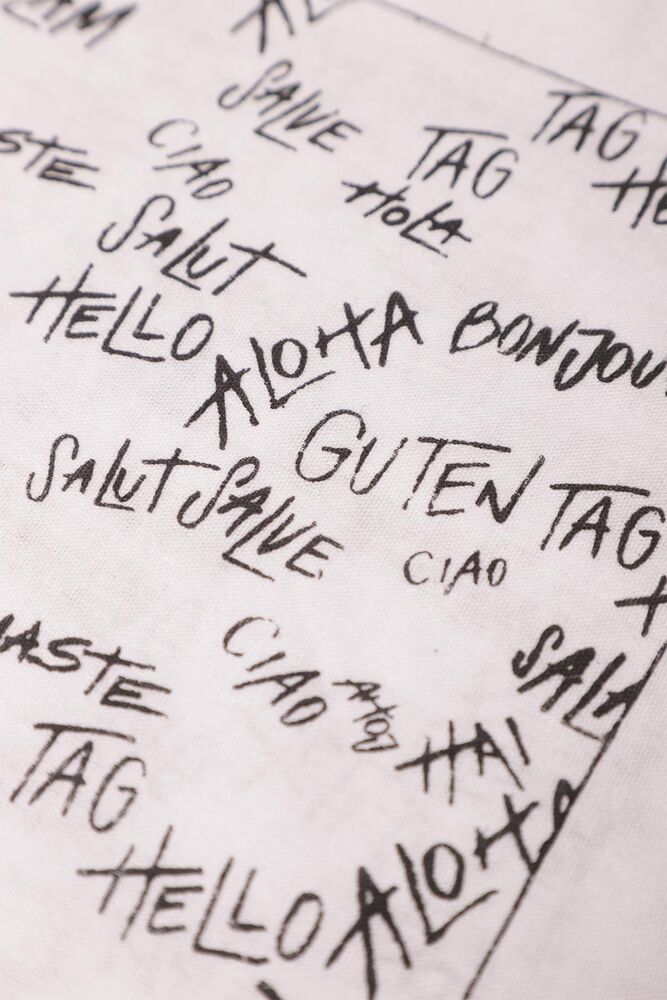 SALVE
TAG
TAG
CIAO
HOLA
SALUT
HELLO
ALOHA
BONJOU
GUTEN TAG
SALUT
SALVE
CIAO
ASTE
CIAO
SALA
HAI
TAG
HELLO
ALOHA